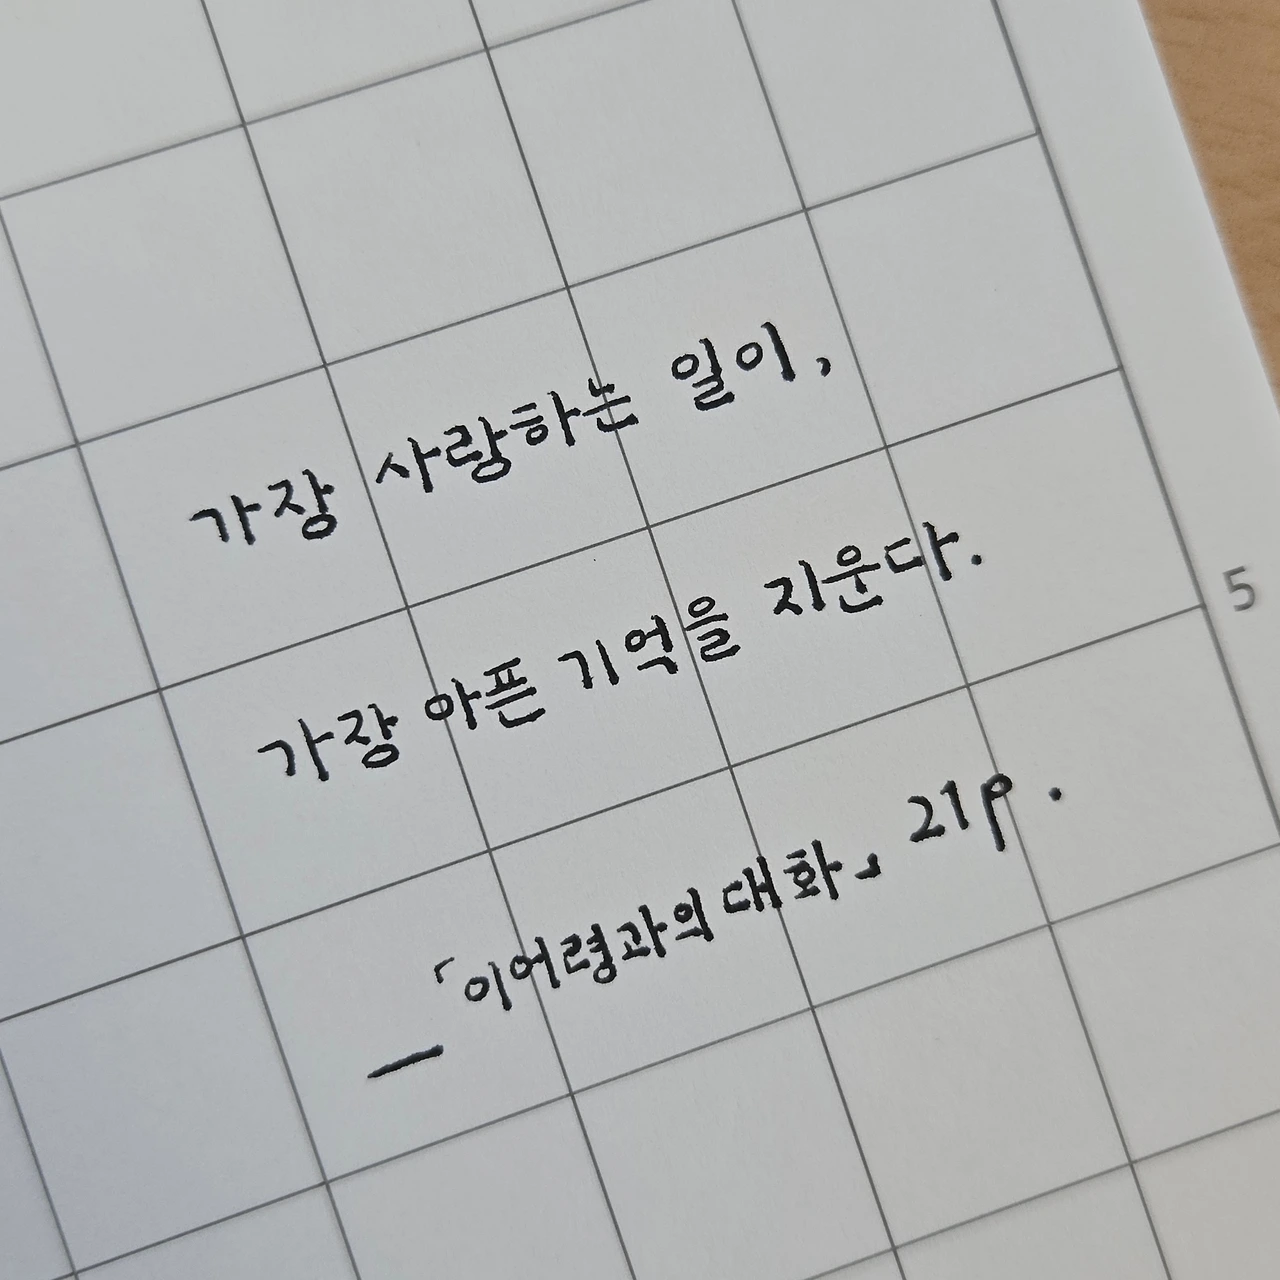 가장 사랑하는 일이,
가장 아픈 기억을 지운다.
5
— 「이어령과의 대화」 21p.